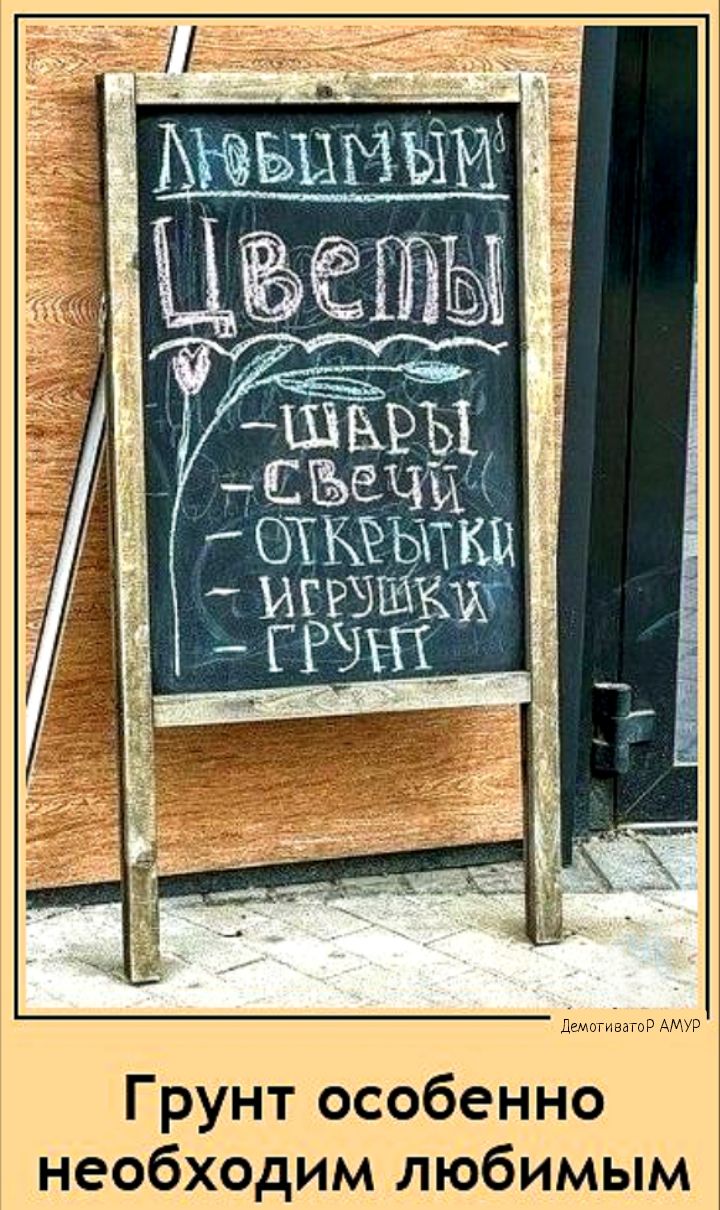 Любимым
Цветы
- ШАРЫ
- Свечи
- ОТКРЫТКИ
- ИГРУШКИ
- ГРУНТ
ДемотиватоР АМУР
Грунт особенно
необходим любимым